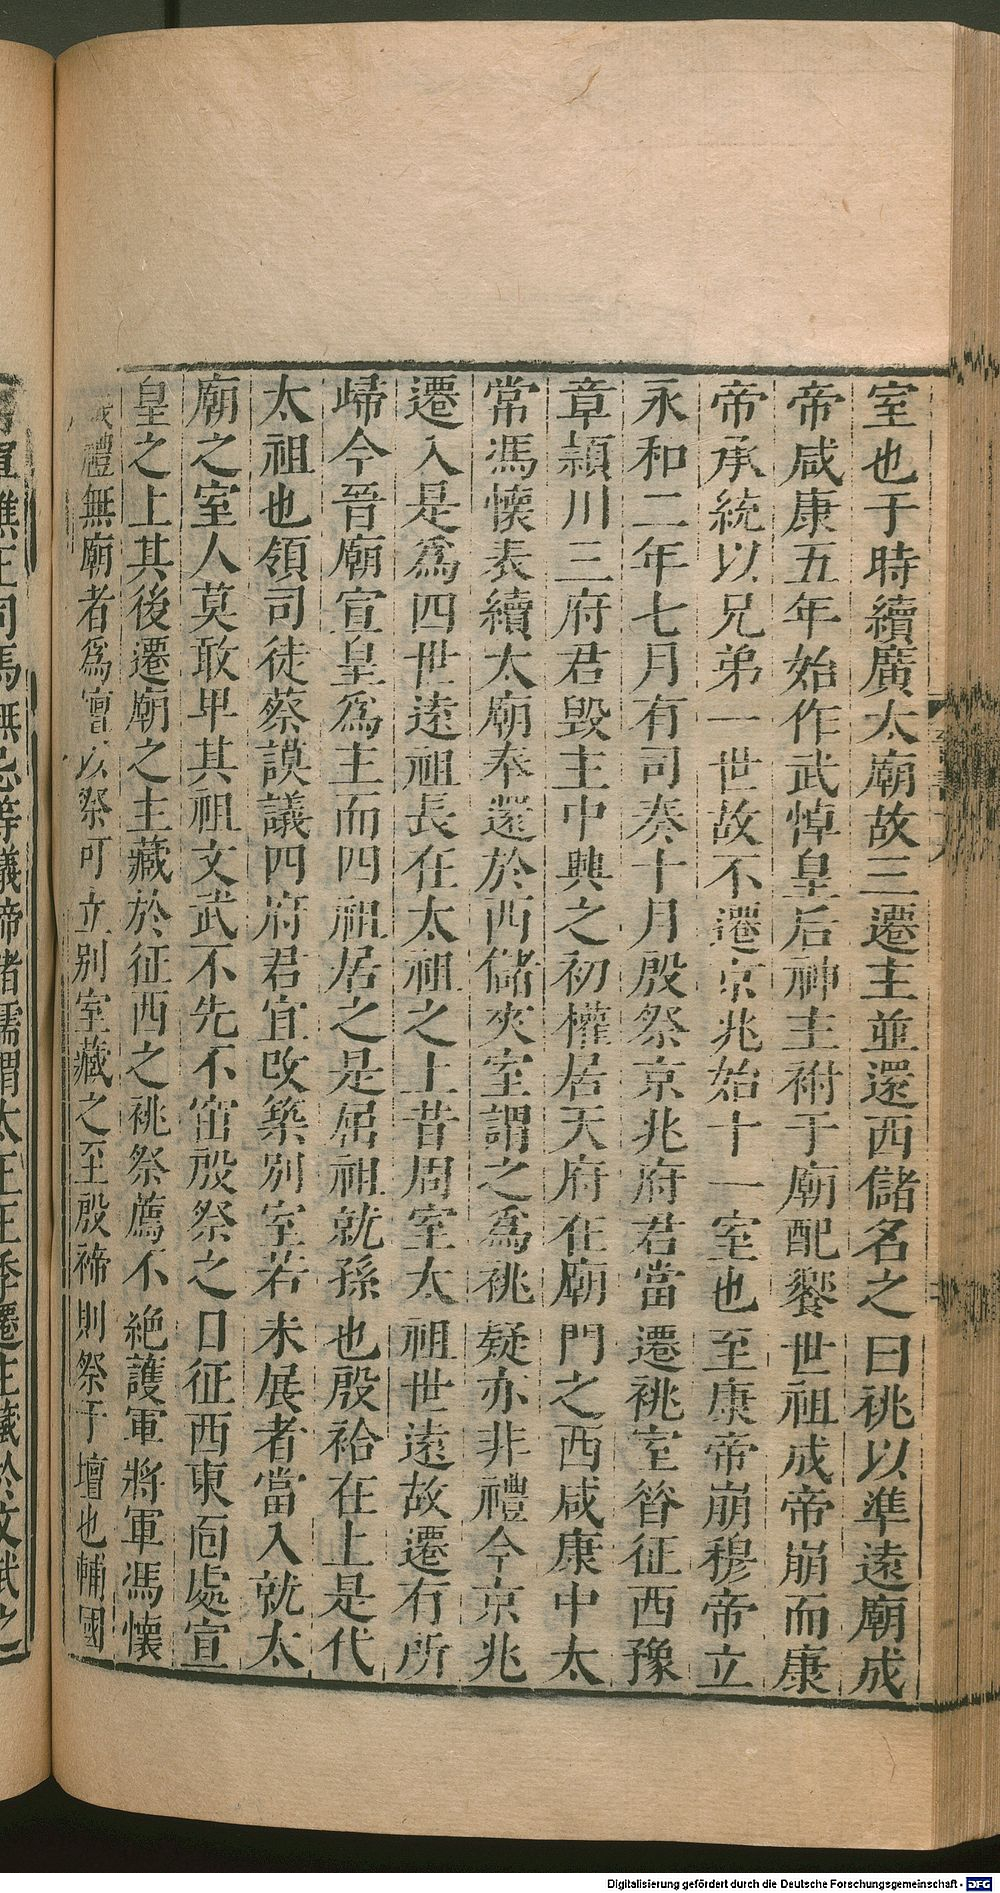 室也于時續廣太廟故三遷主並還西儲名之曰祧以準遠廟成
帝咸康五年始作武悼皇后神主祔于廟配饗世祖成帝崩而康
帝承統以兄弟一世故不遷京兆始十一室也至康帝崩穆帝立
永和二年七月有司奏十月殷祭京兆府君當遷祧室昔征西豫
章潁川三府君毀主中興之初權居天府在廟門之西咸康中太
常馮懷表續太廟奉還於西儲夾室謂之為祧疑亦非禮今京兆
遷入是為四世遠祖長在太祖之上昔周室太祖世遠故遷有所
歸今晉廟宣皇為主而四祖居之是屈祖就孫也殷祫在上是代
太祖也領司徒蔡謨議四府君宜改築別室若未展者當入就太
廟之室人莫敢卑其祖文武不先不窋殷祭之日征西東面處宣
皇之上其後遷廟之主藏於征西之祧祭薦不絕護軍將軍馮懷
禮無廟者為壇以祭可立別室藏之至殷禘則祭于壇也輔國
馬無忌等議諸儒謂太王王季遷主藏於文武之
Digitalisierung gefördert durch die Deutsche Forschungsgemeinschaft - DFG